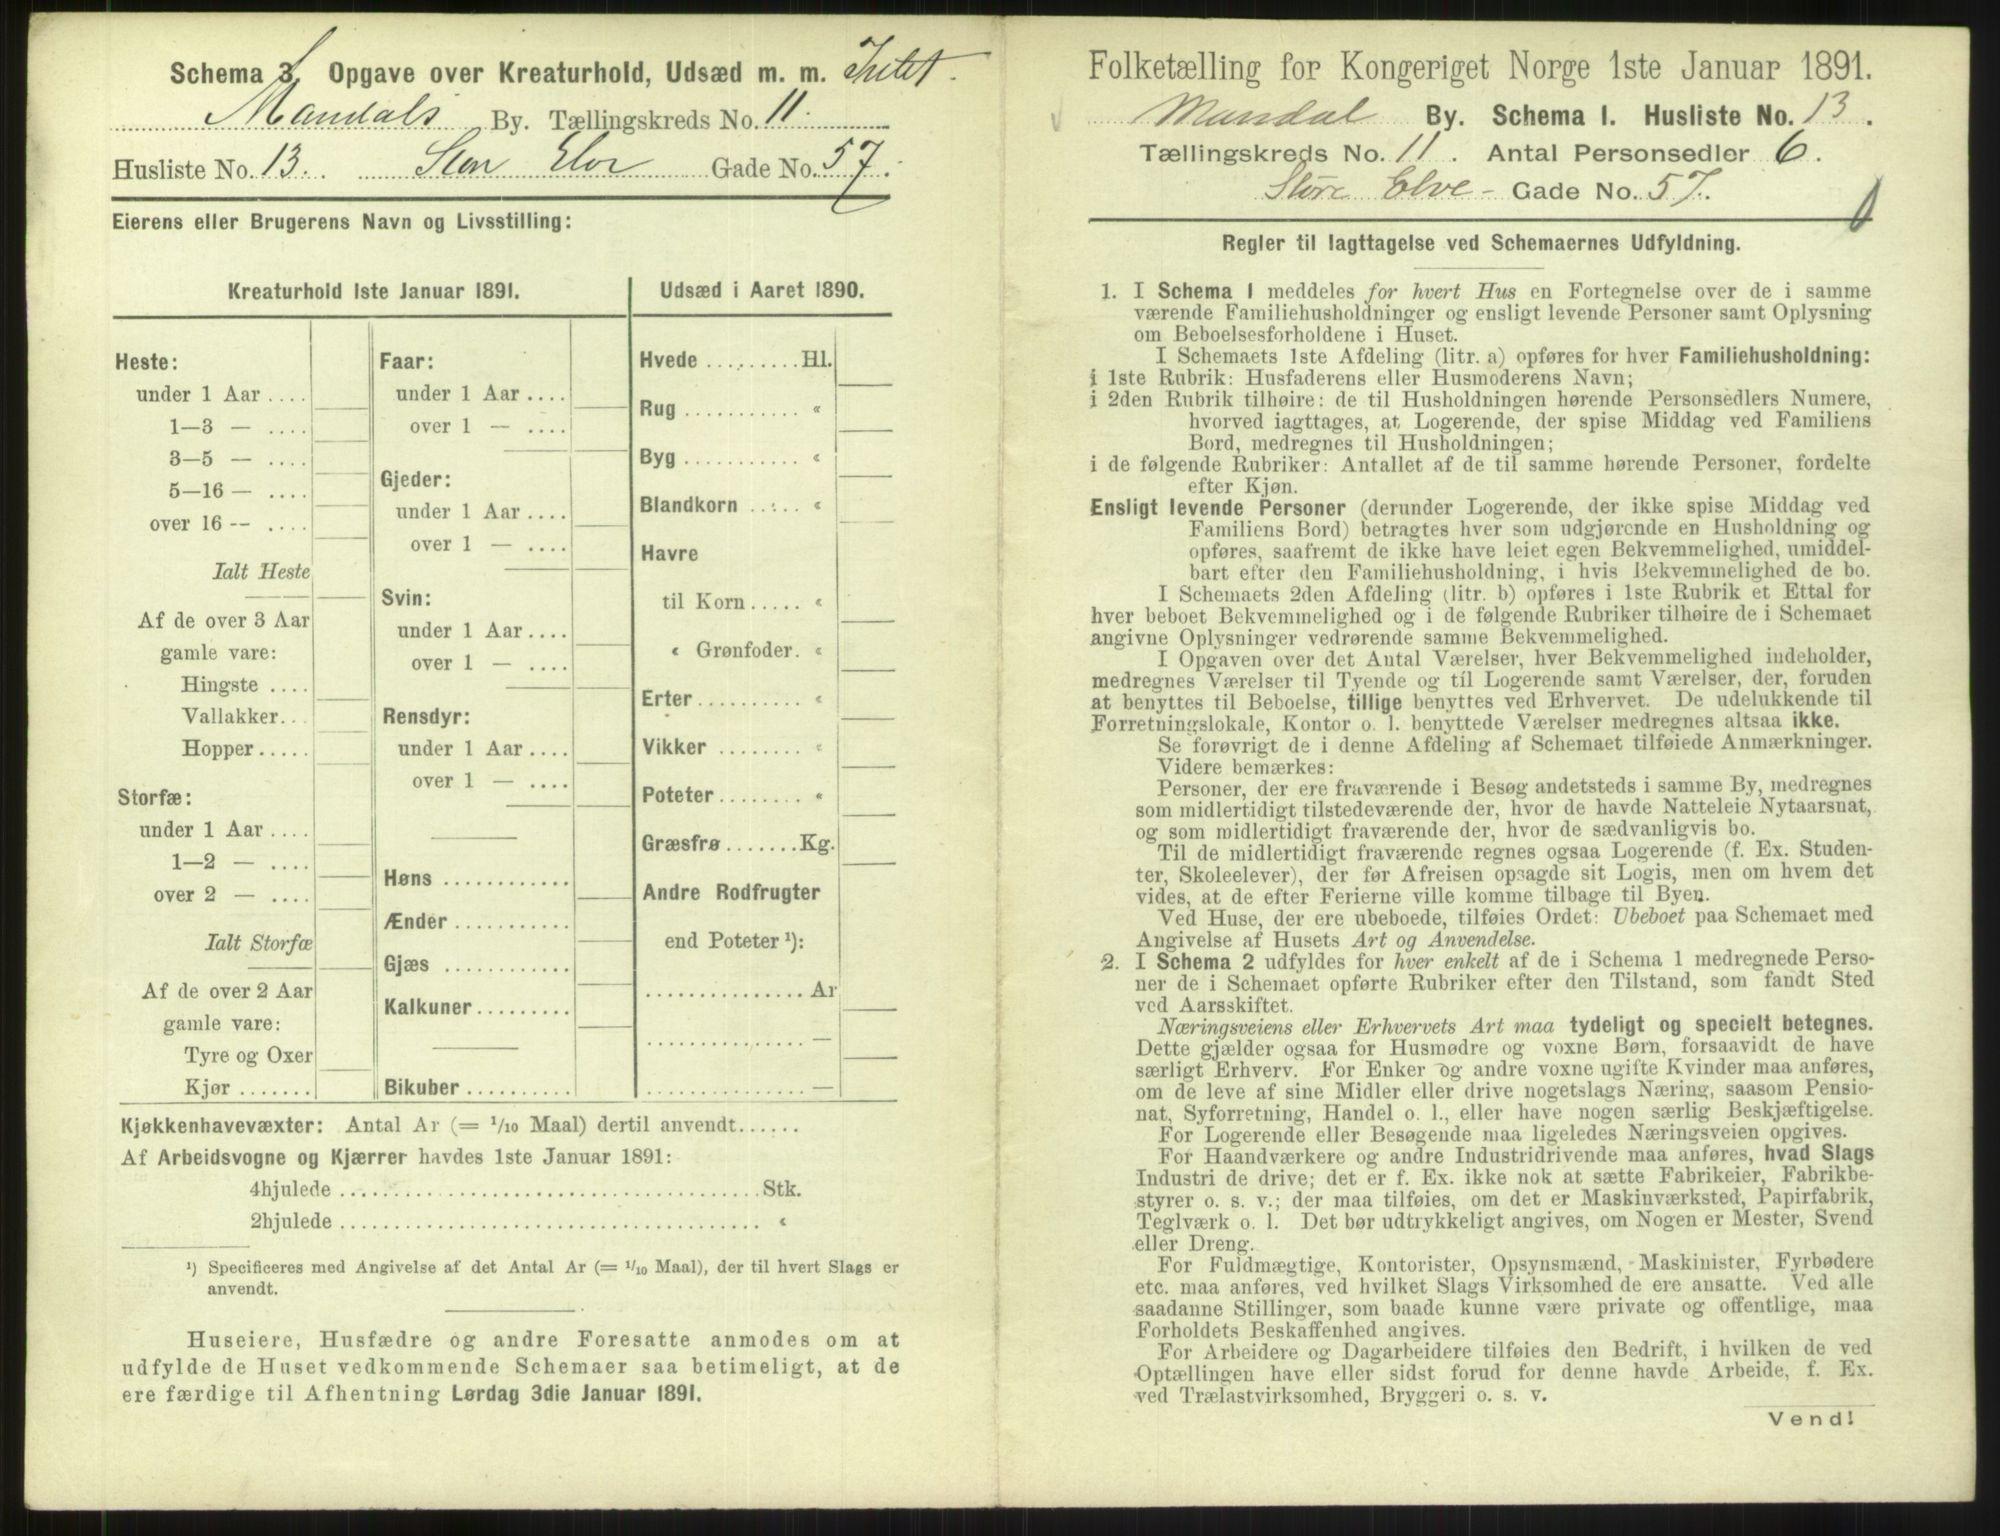 Schema 3. Opgave over Kreaturhold, Udsæd m. m. Intet.
Mandals By. Tællingskreds No. 11.
Husliste No. 13. Stor Elve Gade No. 57.
Eierens eller Brugerens Navn og Livsstilling:
Kreaturhold 1ste Januar 1891.
Heste:
under 1 Aar ....
1—3 — ....
3—5 — ....
5—16 — ....
over 16 -- ....
Ialt Heste
Af de over 3 Aar
gamle vare:
Hingste ....
Vallakker...
Hopper .....
Storfæ:
under 1 Aar ....
1—2 — ....
over 2 — ....
Ialt Storfæ
Af de over 2 Aar
gamle vare:
Tyre og Oxer
Kjør .......
Faar:
under 1 Aar ....
over 1 — ....
Gjeder:
under 1 Aar ....
over 1 — ....
Svin:
under 1 Aar ....
over 1 — ....
Rensdyr:
under 1 Aar ....
over 1 — ....
Høns ............
Ænder ...........
Gjæs ............
Kalkuner.........
Bikuber ..........
Udsæd i Aaret 1890.
Hvede .........Hl.
Rug ........... «
Byg ........... «
Blandkorn ..... «
Havre
til Korn ..... «
« Grønfoder. «
Erter .......... «
Vikker ........ «
Poteter ........ «
Græsfrø .......Kg.
Andre Rodfrugter
end Poteter ¹):
............... Ar
............... —
............... —
Kjøkkenhavevæxter: Antal Ar (= 1/10 Maal) dertil anvendt......
Af Arbeidsvogne og Kjærrer havdes 1ste Januar 1891:
4hjulede ........................................ Stk.
2hjulede ........................................ «
¹) Specificeres med Angivelse af det Antal Ar (= 1/10 Maal), der til hvert Slags er
anvendt.
Huseiere, Husfædre og andre Foresatte anmodes om at
udfylde de Huset vedkommende Schemaer saa betimeligt, at de
ere færdige til Afhentning Lørdag 3die Januar 1891.
Folketælling for Kongeriget Norge 1ste Januar 1891.
Mandal By. Schema I. Husliste No. 13.
Tællingskreds No. 11. Antal Personsedler 6.
Store Elve- Gade No. 57.
Regler til Iagttagelse ved Schemaernes Udfyldning.
1. I Schema 1 meddeles for hvert Hus en Fortegnelse over de i samme
værende Familiehusholdninger og ensligt levende Personer samt Oplysning
om Beboelsesforholdene i Huset.
I Schemaets 1ste Afdeling (litr. a) opføres for hver Familiehusholdning:
i 1ste Rubrik: Husfaderens eller Husmoderens Navn;
i 2den Rubrik tilhøire: de til Husholdningen hørende Personsedlers Numere,
hvorved iagttages, at Logerende, der spise Middag ved Familiens
Bord, medregnes til Husholdningen;
i de følgende Rubriker: Antallet af de til samme hørende Personer, fordelte
efter Kjøn.
Ensligt levende Personer (derunder Logerende, der ikke spise Middag ved
Familiens Bord) betragtes hver som udgjørende en Husholdning og
opføres, saafremt de ikke have leiet egen Bekvemmelighed, umiddel-
bart efter den Familiehusholdning, i hvis Bekvemmelighed de bo.
I Schemaets 2den Afdeling (litr. b) opføres i 1ste Rubrik et Ettal for
hver beboet Bekvemmelighed og i de følgende Rubriker tilhøire de i Schemaet
angivne Oplysninger vedrørende samme Bekvemmelighed.
I Opgaven over det Antal Værelser, hver Bekvemmelighed indeholder,
medregnes Værelser til Tyende og til Logerende samt Værelser, der, foruden
at benyttes til Beboelse, tillige benyttes ved Erhvervet. De udelukkende til
Forretningslokale, Kontor o. l. benyttede Værelser medregnes altsaa ikke.
Se forøvrigt de i denne Afdeling af Schemaet tilføiede Anmærkninger.
Videre bemærkes:
Personer, der ere fraværende i Besøg andetsteds i samme By, medregnes
som midlertidigt tilstedeværende der, hvor de havde Natteleie Nytaarsnat,
og som midlertidigt fraværende der, hvor de sædvanligvis bo.
Til de midlertidigt fraværende regnes ogsaa Logerende (f. Ex. Studen-
ter, Skoleelever), der før Afreisen opsagde sit Logis, men om hvem det
vides, at de efter Ferierne ville komme tilbage til Byen.
Ved Huse, der ere ubeboede, tilføies Ordet: Ubeboet paa Schemaet med
Angivelse af Husets Art og Anvendelse.
2. I Schema 2 udfyldes for hver enkelt af de i Schema 1 medregnede Perso-
ner de i Schemaet opførte Rubriker efter den Tilstand, som fandt Sted
ved Aarsskiftet.
Næringsveiens eller Erhvervets Art maa tydeligt og specielt betegnes.
Dette gjælder ogsaa for Husmødre og voxne Børn, forsaavidt de have
særligt Erhverv. For Enker og andre voxne ugifte Kvinder maa anføres,
om de leve af sine Midler eller drive nogetslags Næring, saasom Pensio-
nat, Syforretning, Handel o. l., eller have nogen særlig Beskjæftigelse.
For Logerende eller Besøgende maa ligeledes Næringsveien opgives.
For Haandværkere og andre Industridrivende maa anføres, hvad Slags
Industri de drive; det er f. Ex. ikke nok at sætte Fabrikeier, Fabrikbe-
styrer o. s. v.; der maa tilføies, om det er Maskinværksted, Papirfabrik,
Teglværk o. l. Det bør udtrykkeligt angives, om Nogen er Mester, Svend
eller Dreng.
For Fuldmægtige, Kontorister, Opsynsmænd, Maskinister, Fyrbødere
etc. maa anføres, ved hvilket Slags Virksomhed de ere ansatte. Ved alle
saadanne Stillinger, som baade kunne være private og offentlige, maa
Forholdets Beskaffenhed angives.
For Arbeidere og Dagarbeidere tilføies den Bedrift, i hvilken de ved
Optællingen have eller sidst forud for denne havde Arbeide, f. Ex.
ved Trælastvirksomhed, Bryggeri o. s. v.
Vend!